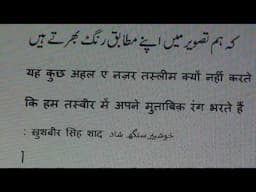 کہ ہم تصویر میں اپنے مطابق رنگ بھرتے ہیں
यह कुछ अहल ए नज़र तस्लीम क्यों नहीं करते
कि हम तस्वीर में अपने मुताबिक़ रंग भरते हैं
: खुशबीर सिंह शाद خوشبیر سنگھ شاد